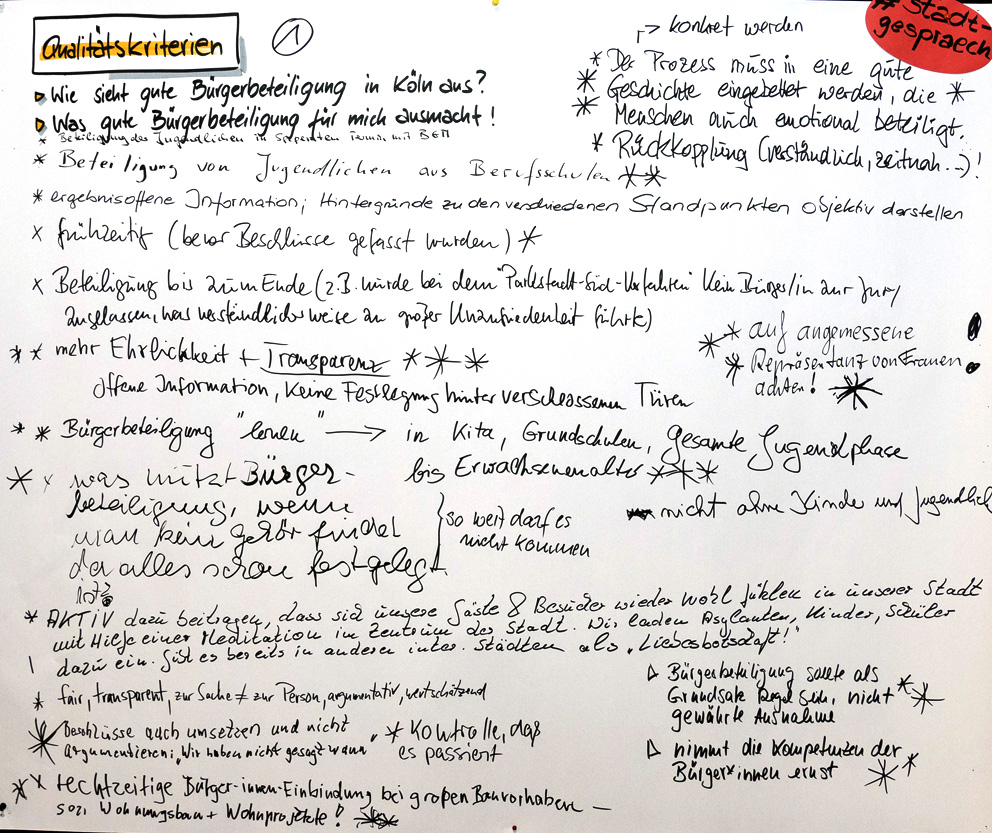 Qualitätskriterien
1
#Stadt-
gespraech
Wie sieht gute Bürgerbeteiligung in Köln aus?
Was gute Bürgerbeteiligung für mich ausmacht!
* Beteiligung der Jugendlichen in separaten Termin mit
* Beteiligung von Jugendlichen aus Berufsschulen **
* ergebnisoffene Information; Hintergründe zu den verschiedenen Standpunkten objektiv darstellen
x frühzeitig (bevor Beschlüsse gefasst wurden) *
x Beteiligung bis zum Ende (z.B. wurde bei dem "Parkstadt-Süd-Verfahren" kein Bürger/in zur Jury
zugelassen, was verständlicherweise zu großer Unzufriedenheit führte)
* * mehr Ehrlichkeit + Transparenz * * *
Offene Information, keine Festlegung hinter verschlossenen Türen
* * Bürgerbeteiligung "lernen" → in Kita, Grundschulen, gesamte Jugendphase
bis Erwachsenenalter ***
* x was nützt Bürger-
beteiligung, wenn
man kein gehör findet
da alles schon festgelegt
ist?
so weit darf es
nicht kommen
* AKTIV dazu beitragen, dass sich unsere Gäste & Besucher wieder wohl fühlen in unserer Stadt
mit Hilfe einer Meditation im Zentrum der Stadt. Wir laden Asylanten, Kinder, Schüler
dazu ein. Gibt es bereits in anderen inter. Städten als "Liebesbotschaft!"
* fair, transparent, zur Sache ≠ zur Person, argumentativ, wertschätzend
* Beschlüsse auch umsetzen und nicht
argumentieren: "Wir haben nicht gesagt wann"
* Kontrolle, daß
es passiert
* x rechtzeitige Bürger-innen-Einbindung bei großen Bauvorhaben –
soz. Wohnungsbau + Wohnprojekte! **
→ konkret werden
* Der Prozess muss in eine gute
* Geschichte eingebettet werden, die *
* Menschen auch emotional beteiligt.
* Rückkopplung (verständlich, zeitnah...)!
* * auf angemessene
* Repräsentanz von Frauen
achten! *
nicht ohne Kinder und Jugendlich
▷ Bürgerbeteiligung sollte als
Grundsatz Regel sein, nicht
gewährte Ausnahme * *
▷ nimmt die Kompetenzen der
Bürger*innen ernst * *